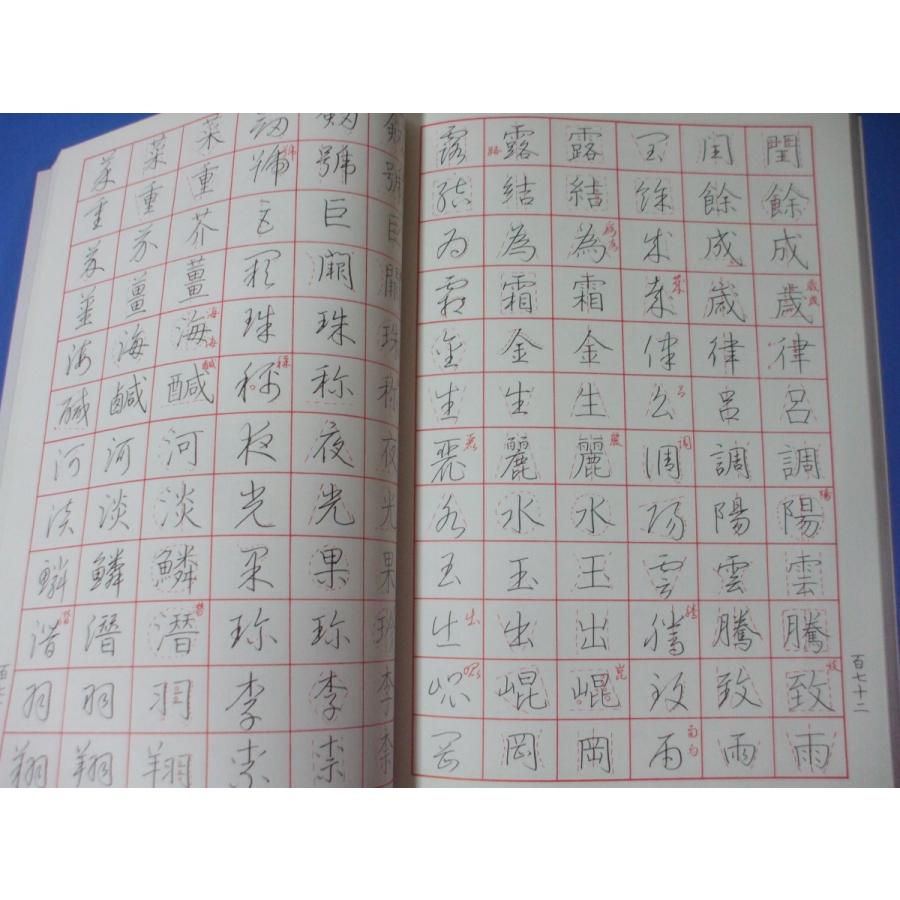 閏餘成歳律呂調陽雲騰致雨
閏餘成歳律呂調陽雲騰致雨
閏餘成歳律呂調陽雲騰致雨
露結為霜金生麗水玉出崐岡
露結為霜金生麗水玉出崐岡
露結為霜金生麗水玉出崐岡
百七十二
劔號巨闕珠称夜光果珍李柰
劔號巨闕珠称夜光果珍李柰
劔號巨闕珠称夜光果珍李柰
菜重芥薑海鹹河淡鱗潛羽翔
菜重芥薑海鹹河淡鱗潛羽翔
菜重芥薑海鹹河淡鱗潛羽翔